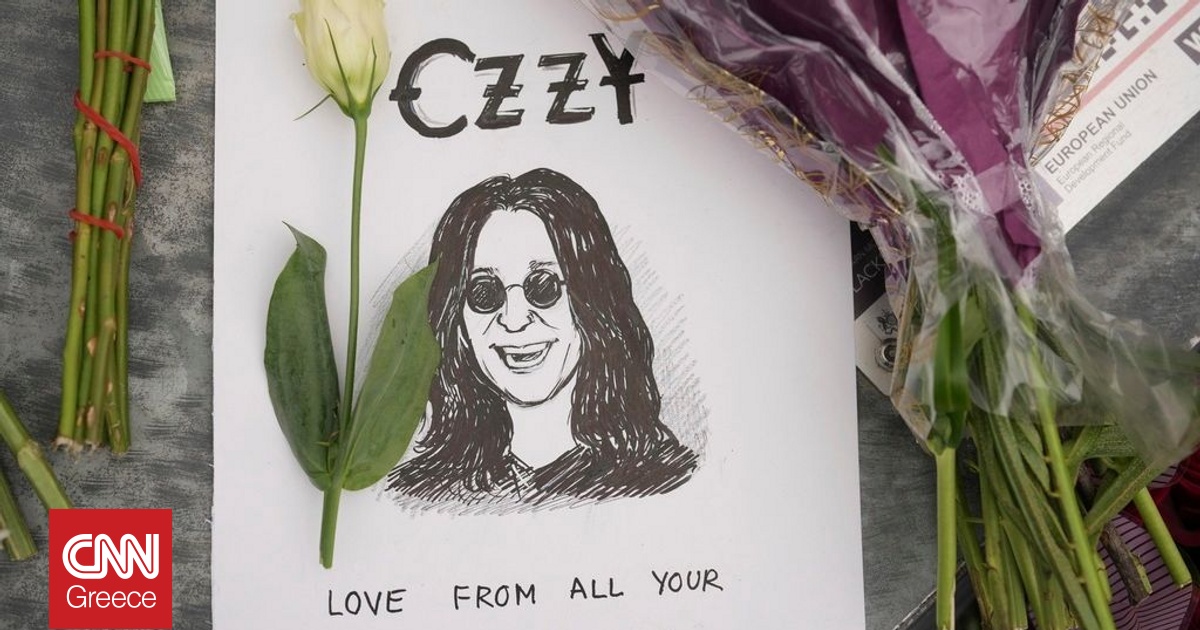 OZZY
LOVE FROM ALL YOUR
EUROPEAN UNION
European Regional
Development Fund
LACK
CNN
Greece